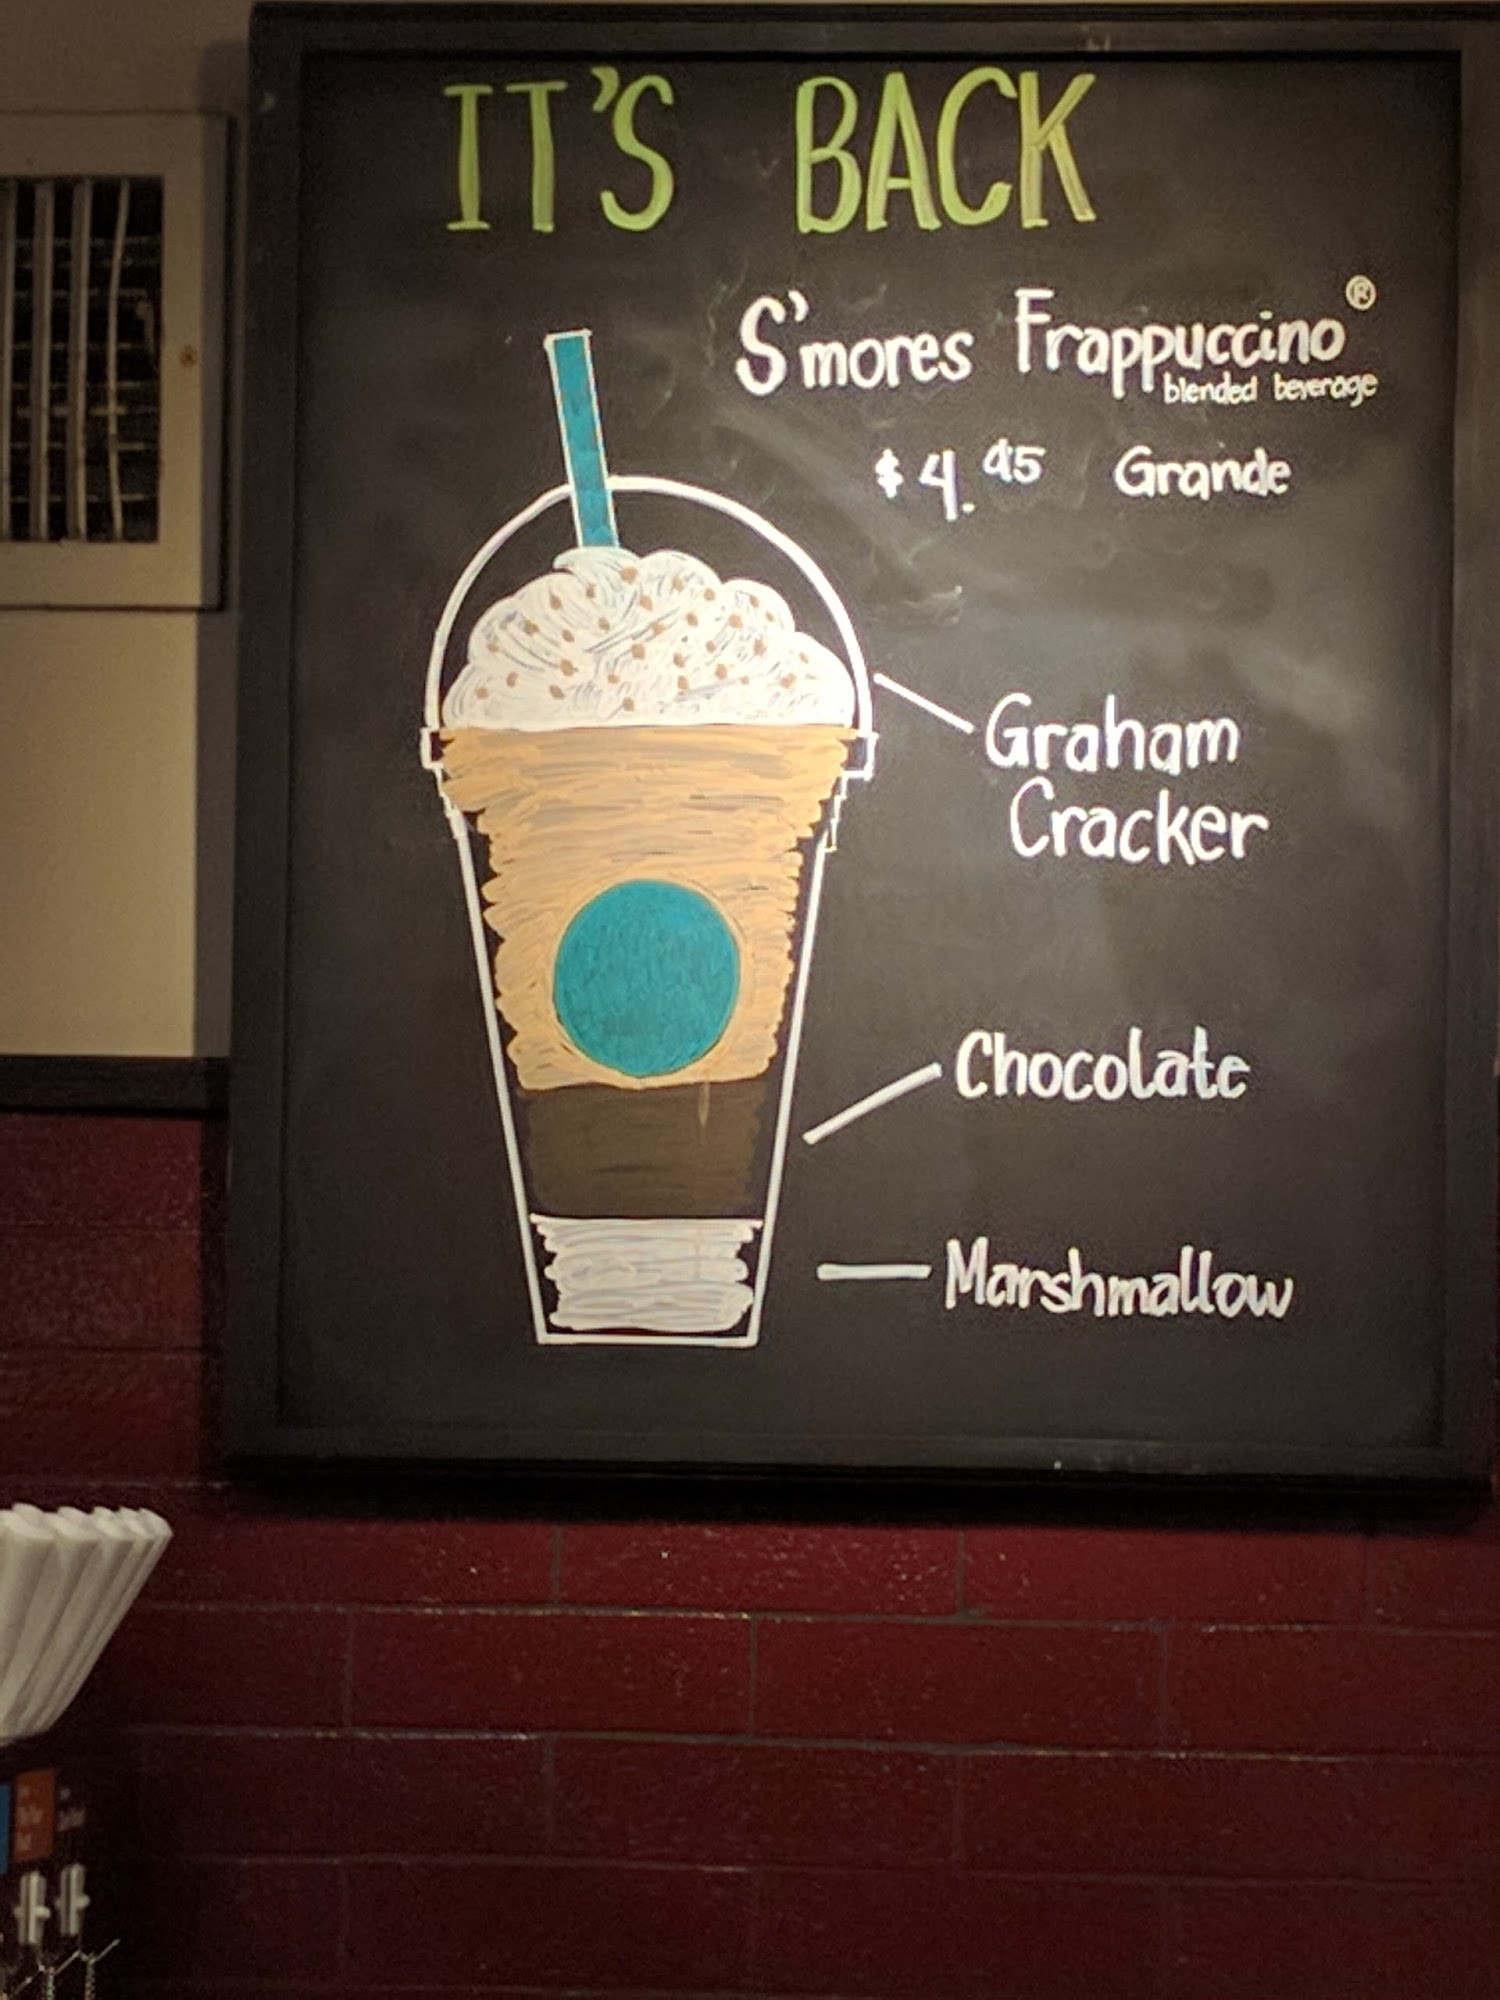 IT'S BACK
S'mores Frappuccino®
blended beverage
$4.95 Grande
Graham
Cracker
Chocolate
Marshmallow